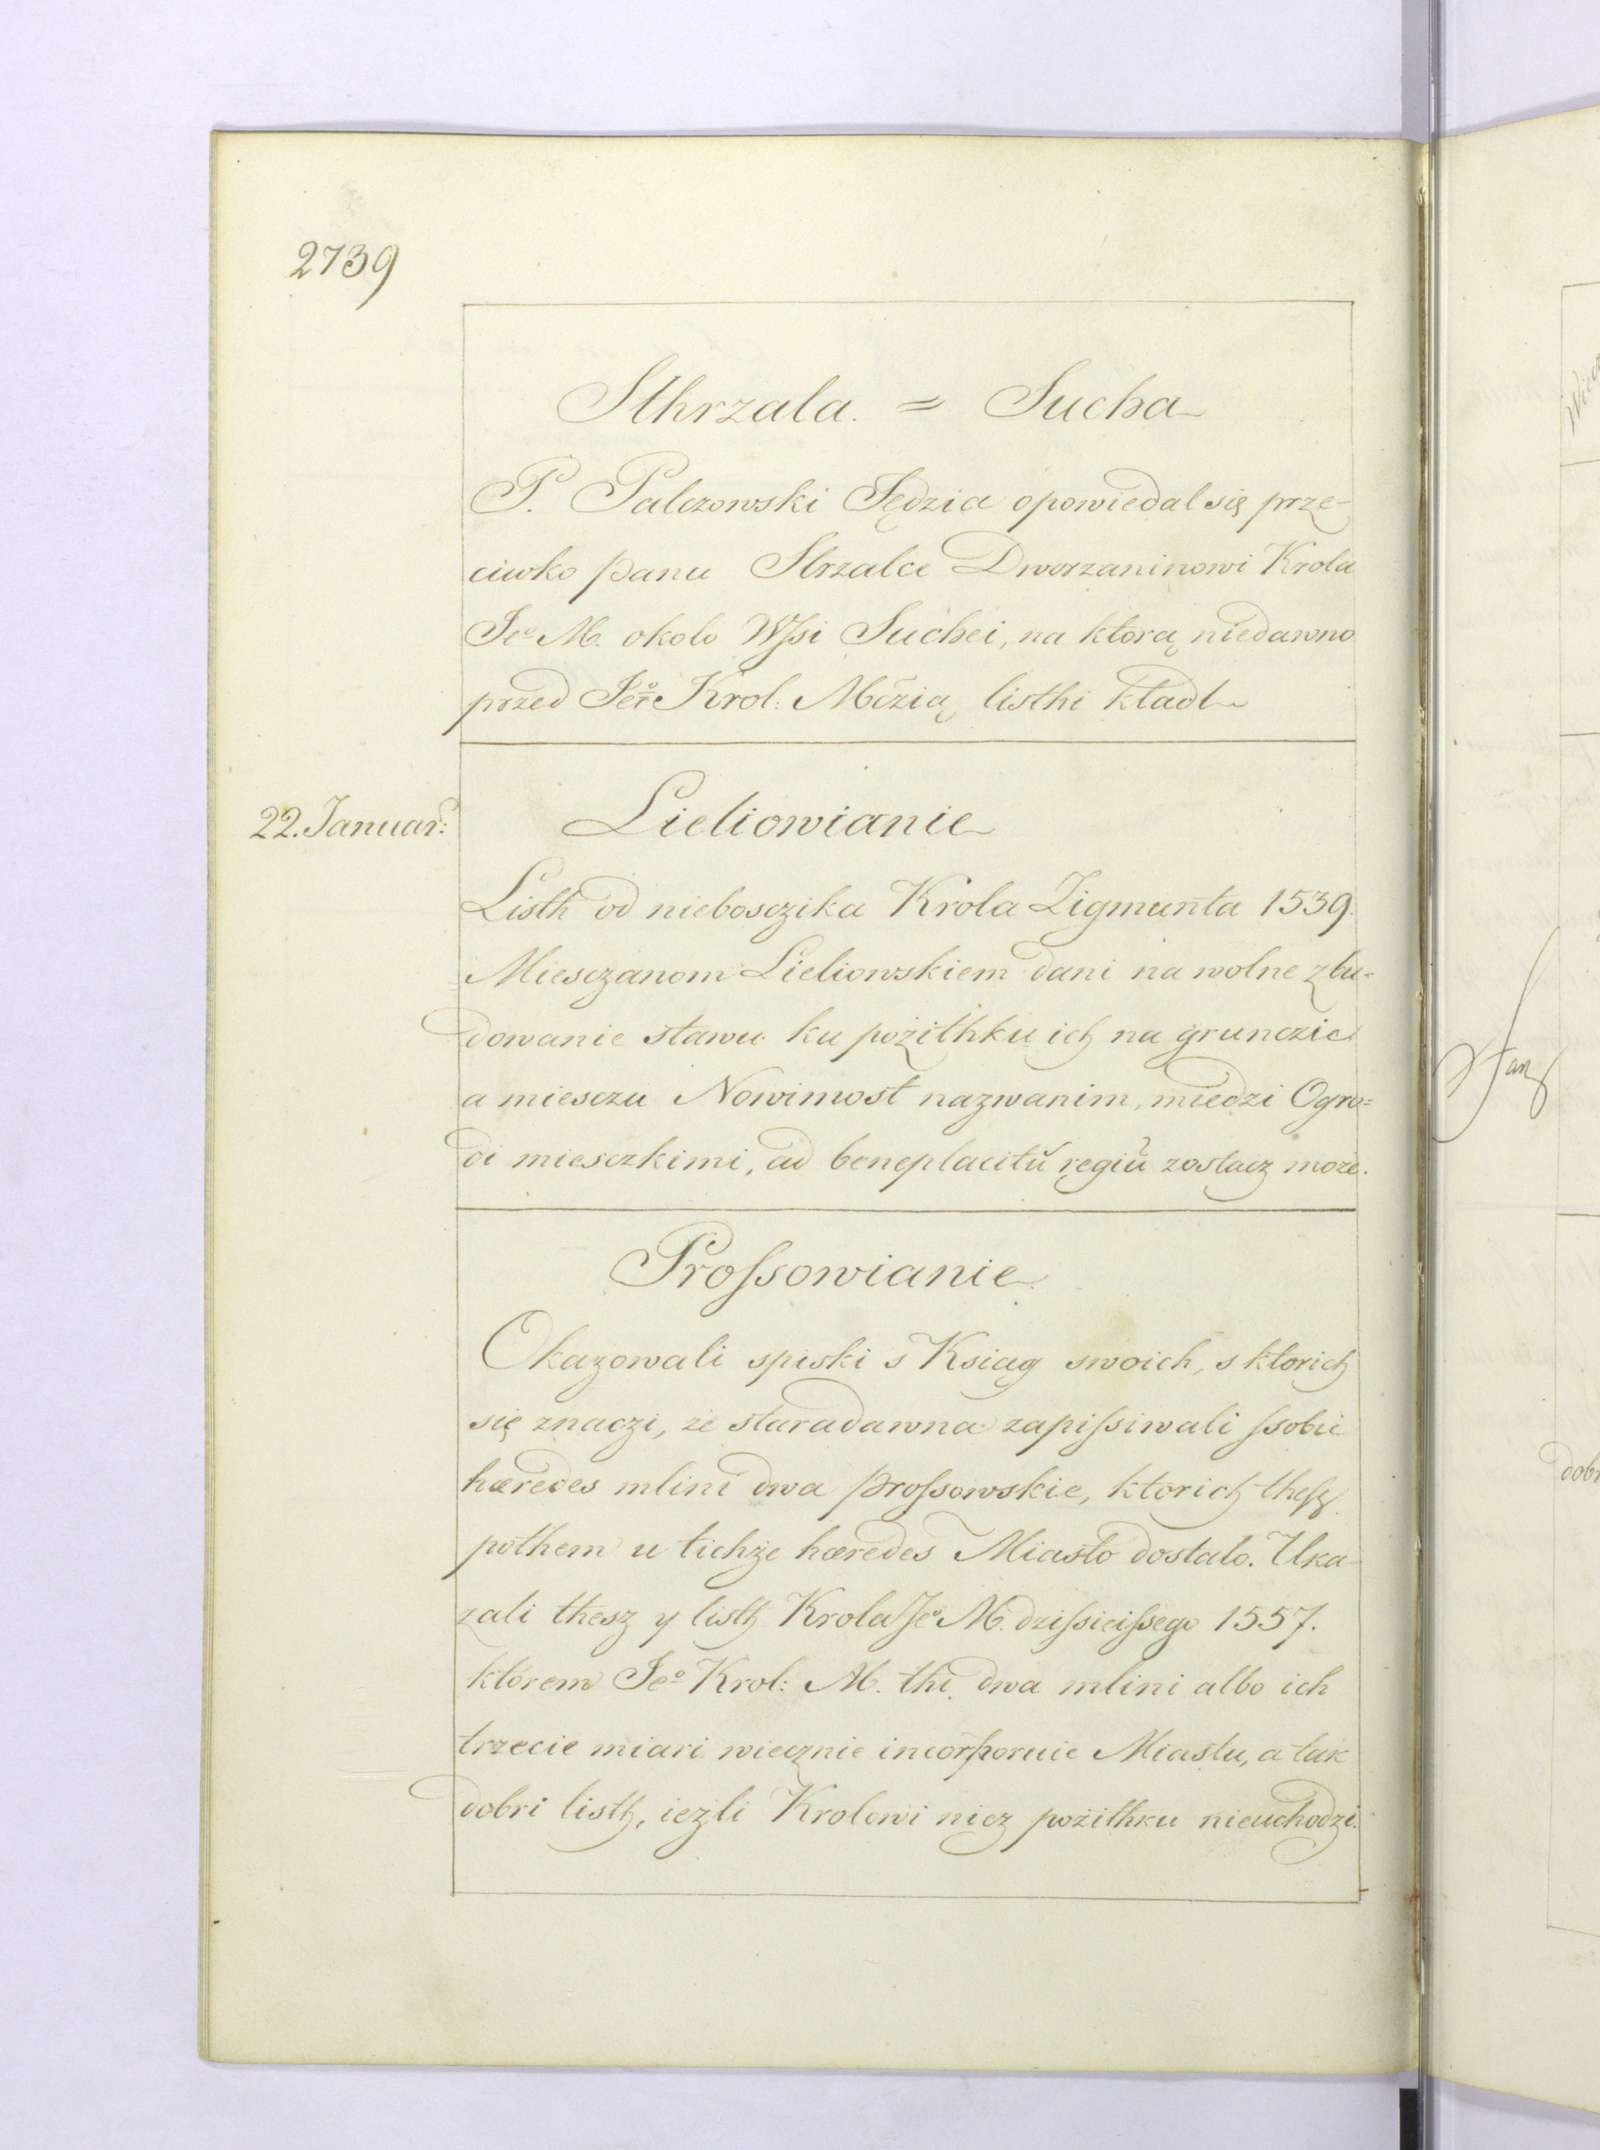 2739
Sthrzala. = Sucha
P. Palczowski Sędzia opowiedal się prze-
ciwko panu Strzalce Dworzaninowi Krola
Je° M. okolo Wſsi Suchei, na ktorą niedawno
przed Je° Krol: Mczią listhi kładl
22. Januar:
Lieliowianie
Listh od nieboszczika Krola Zigmunta 1539.
Miesczanom Lieliowskiem dani na wolne zbu-
dowanie stawu ku pożithku ich na grunczie
a miesczu Nowimost nazwanim, miedzi Ogro=
di miesczkimi, ad beneplacitū regiū zostacz może.
Proſsowianie
Okazowali spiski s Ksiag swoich, s ktorich
się znaczi, że staradawna zapiſsiwali ſsobie
hæredes mlini dwa proſsowskie, ktorich theſz
pothem u tichże hæredes Miasto dostalo. Uka-
zali thesz y listh Krola Je° M. dziſsieiſsego 1557.
ktorem Je° Krol: M. thi dwa mlini albo ich
trzecie miari wiecznie incorporuie Miastu, a tak
dobri listh, ieżli Krolowi nicz pożithku nieuchodzi.
dobr